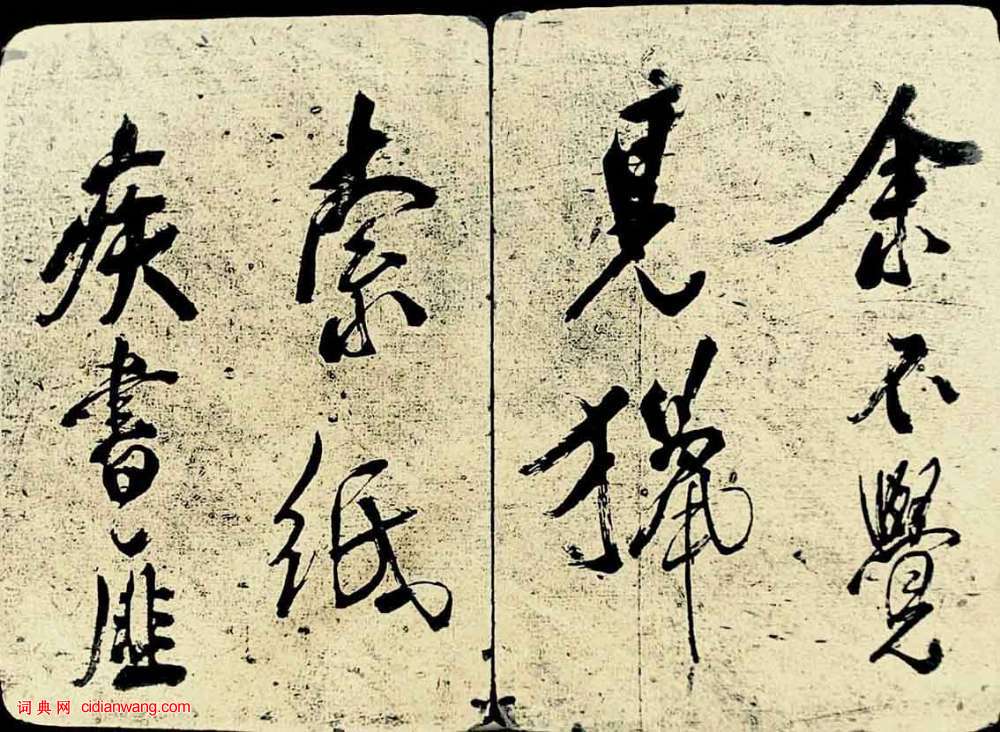 余不覺
見獵
索紙
疾書匪
词典网 cidianwang.com